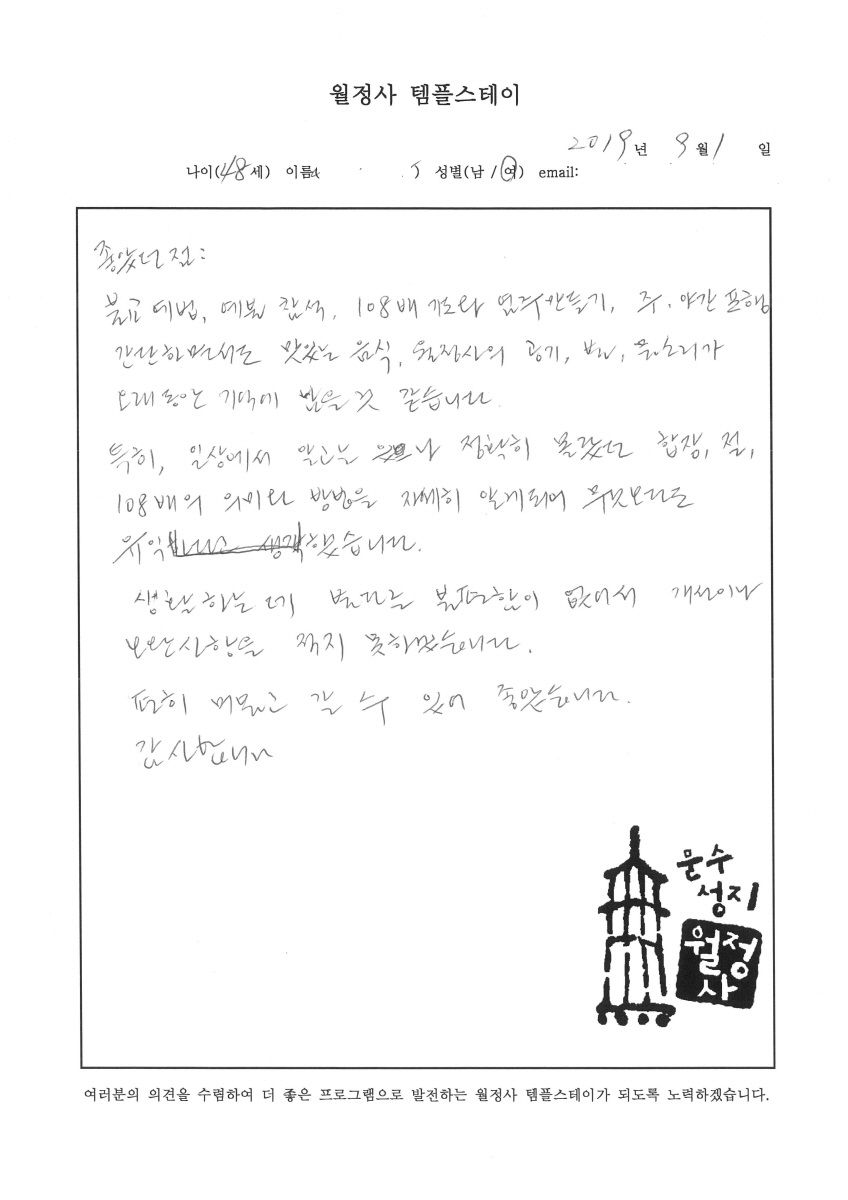 월정사 템플스테이
2019년 9월 1일
나이(48세) 이름 성별(남 / 여) email:
좋았던 점:
불교 예법, 예불 참석, 108배 개도와 염주만들기, 주·야간 포행
간단하면서도 맛있는 음식, 월정사의 공기, 별, 물소리가
오래동안 기억에 남을 것 같습니다.
특히, 일상에서 알고는 나 정확히 몰랐던 합장, 절,
108배의 의미와 방법을 자세히 알게되어 무엇보다도
유익했습니다.
생활하는 데 별다른 불편함이 없어서 개선이나
보완사항을 적지 못하였습니다.
편히 머물고 갈 수 있어 좋았습니다.
감사합니다
문수
성지
월정
사
여러분의 의견을 수렴하여 더 좋은 프로그램으로 발전하는 월정사 템플스테이가 되도록 노력하겠습니다.